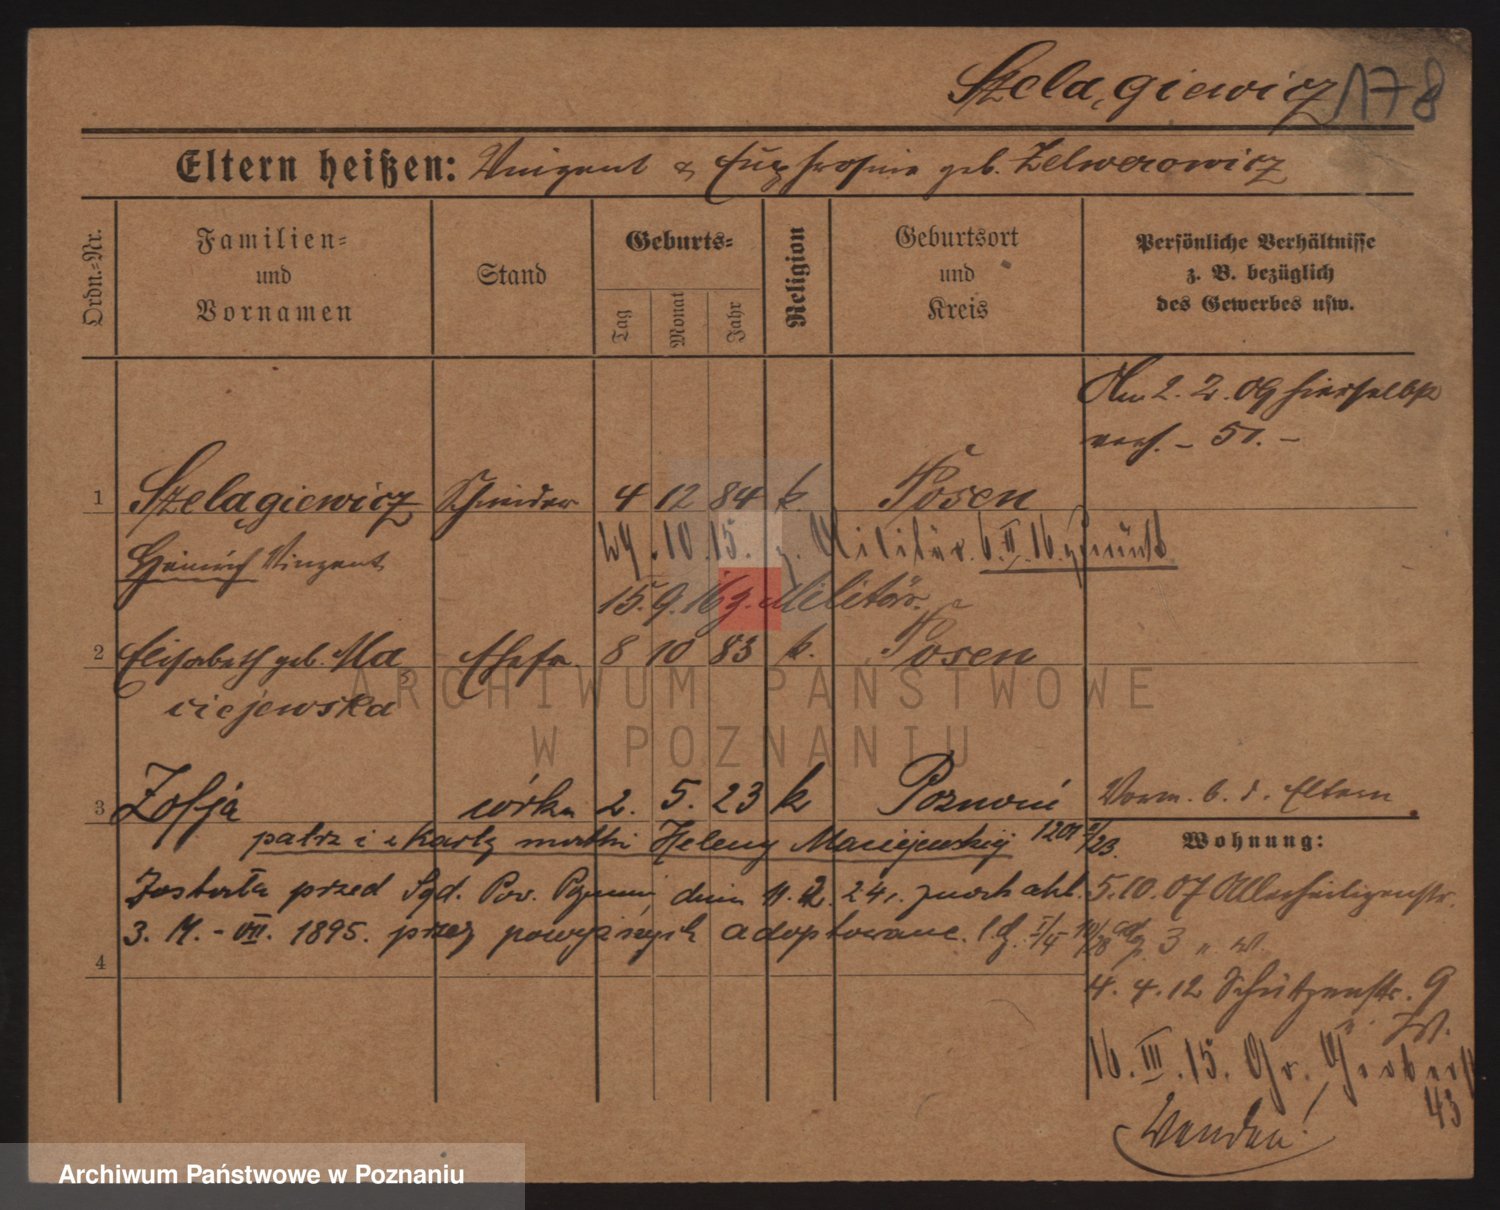 Szelągiewicz 178
Eltern heißen: Vinzent & Euphrosine geb. Zelwerowicz
Ordn.-Nr.
Familien-
und
Vornamen
Stand
Geburts-
Tag
Monat
Jahr
Religion
Geburtsort
und
Kreis
Persönliche Verhältnisse
z. B. bezüglich
des Gewerbes usw.
Am 2. 2. 09 hierselbst
verh. - 51. -
1 Szelągiewicz Schneider 4 12 84 k. Posen
Heinrich Vinzent
29.10.15. z. Militär. 6.II.16. zurück
15.9.16 z. Militär.
2 Elisabeth geb. Ma Ehefr. 8 10 83 k. Posen
ciejewska
3 Zofja córka 2. 5. 23 k Poznań
Vorm. b. d. Eltern
patrz i kartę matki Heleny Maciejewskiej 1201 2/23.
Wohnung:
Została przed Sąd. Pow. Poznań dnia 11. 2. 24.
5.10.07 Allerheiligenstr.
3. M. - VII. 1895. przez powyższych adoptowane.
3 " W.
4
4. 4. 12 Schützenstr. 9
16.III.15. Gr. Gerberst
43
Wenden!
ARCHIWUM PAŃSTWOWE
W POZNANIU
Archiwum Państwowe w Poznaniu